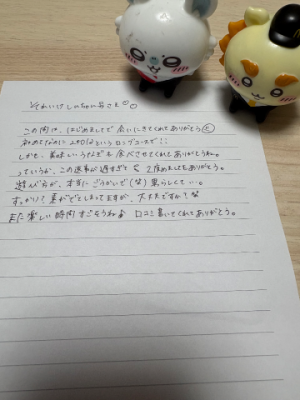 この間は、はじめましてで会いにきてくれてありがとう
初めてなのに 120分というロングコースで!!
しかも、美味しいうなぎも食べさせてくれてありがとうね。
っていうか、この返事が遅すぎて 2度めましてもありがとう。
遊び方が、本当にごうかいで(笑) 男らしくて…。
すっかり! 素がでてしまってますが、大丈夫ですか?笑
また楽しい時間すごそうね♪ 口コミ書いてくれてありがとう。